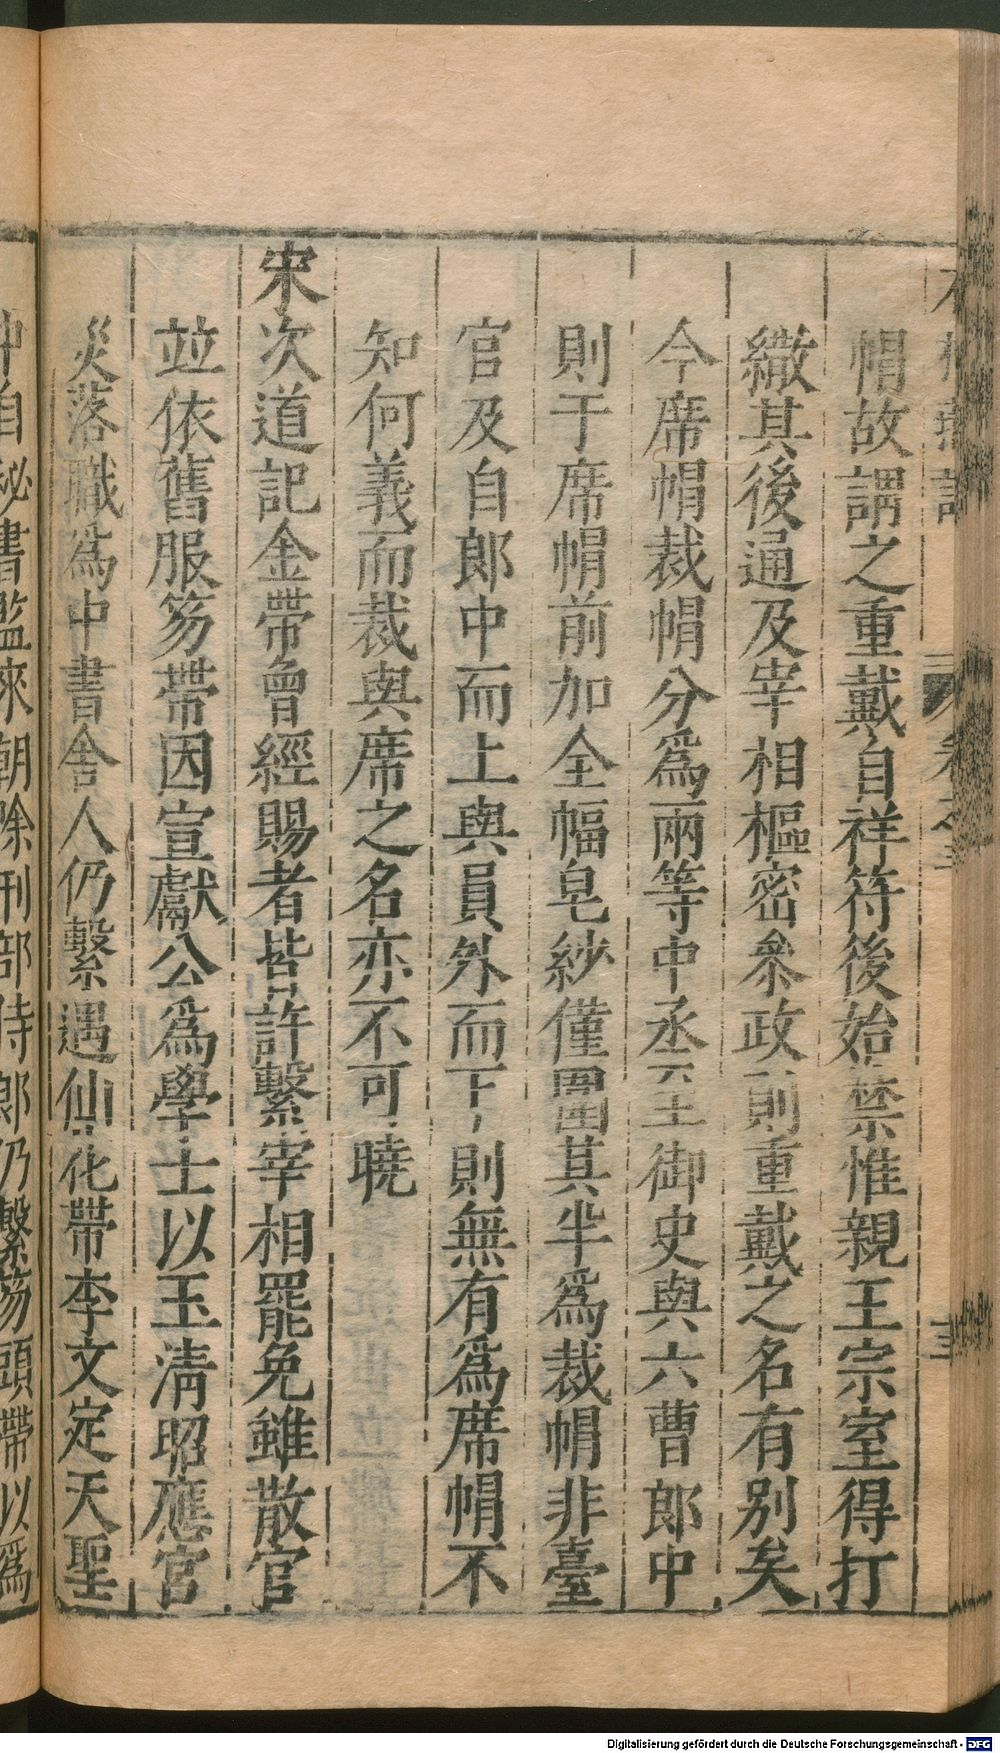 帽故謂之重戴自祥符後始禁惟親王宗室得打
繖其後通及宰相樞密叅政則重戴之名有别矣
今席帽裁帽分爲兩等中丞至御史與六曹郎中
則于席帽前加全幅皂紗僅圍其半爲裁帽非臺
官及自郎中而上與員外而下則無有爲席帽不
知何義而裁與席之名亦不可曉
宋次道記金帶曾經賜者皆許繫宰相罷免雖散官
並依舊服笏帶因宣獻公爲學士以玉清昭應宮
災落職爲中書舍人仍繫遇仙花帶李文定天聖
中自秘書監來朝除刑部侍郎仍繫笏頭帶以爲
Digitalisierung gefördert durch die Deutsche Forschungsgemeinschaft - DFG